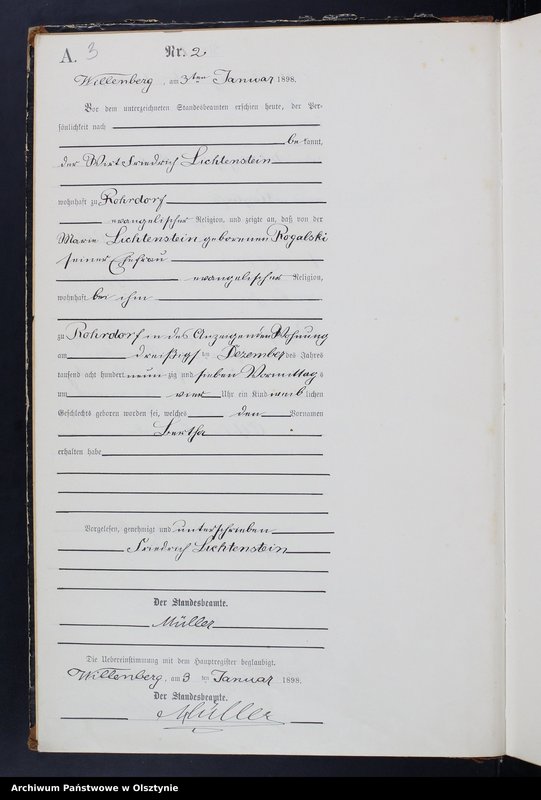 A. 3 Nr. 2
Willenberg, am 3ten Januar 1898.
Vor dem unterzeichneten Standesbeamten erschien heute, der Per-
sönlichkeit nach
bekannt,
der Wirt Friedrich Lichtenstein
wohnhaft zu Rohrdorf
evangelischer Religion, und zeigte an, daß von der
Marie Lichtenstein geborenen Rogalski
seiner Ehefrau
evangelischer Religion,
wohnhaft bei ihm
zu Rohrdorf in des Anzeigenden Wohnung
am dreißigsten Dezember des Jahres
tausend acht hundert neunzig und sieben Vormittags
um vier Uhr ein Kind weiblichen
Geschlechts geboren worden sei, welches den Vornamen
Bertha
erhalten habe
Vorgelesen, genehmigt und unterschrieben
Friedrich Lichtenstein
Der Standesbeamte.
Müller
Die Uebereinstimmung mit dem Hauptregister beglaubigt.
Willenberg, am 3 ten Januar 1898.
Der Standesbeamte.
Müller
Archiwum Państwowe w Olsztynie